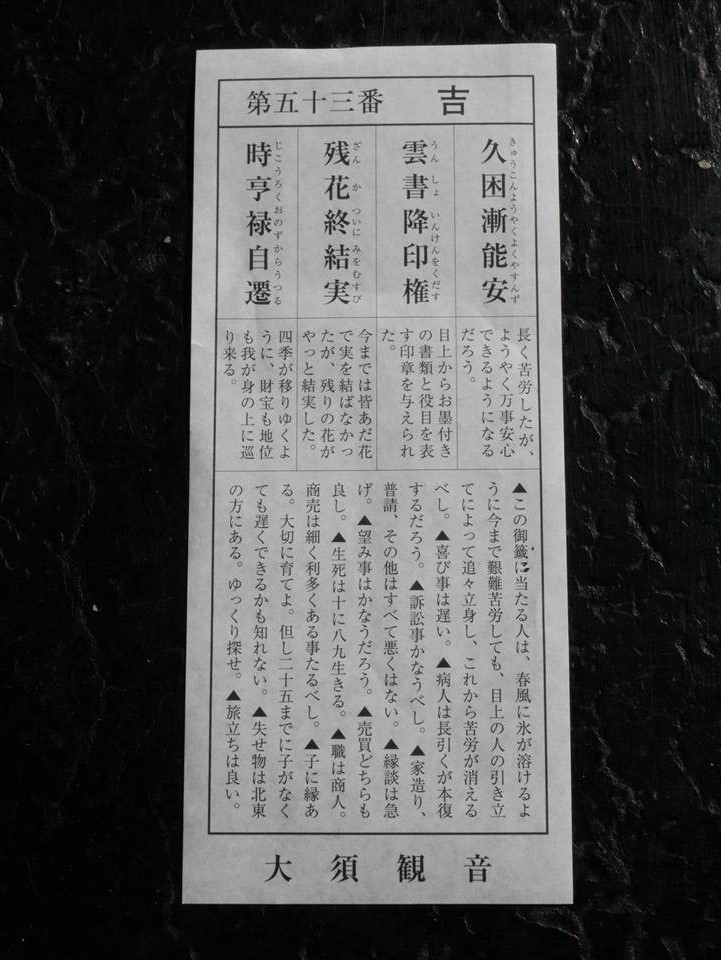 第五十三番 吉
久困漸能安
きゅうこんようやくよくやすんず
雲書降印権
うんしょ いんけんをくだす
残花終結実
ざんか ついに みをむすび
時亨禄自遷
じこうろくおのずからうつる
長く苦労したが、
ようやく万事安心
できるようになる
だろう。
目上からお墨付き
の書類と役目を表
す印章を与えられ
た。
今までは皆あだ花
で実を結ばなかっ
たが、残りの花が
やっと結実した。
四季が移りゆくよ
うに、財宝も地位
も我が身の上に巡
り来る。
▲この御籤に当たる人は、春風に氷が溶けるよ
うに今まで艱難苦労しても、目上の人の引き立
てによって追々立身し、これから苦労が消える
べし。▲喜び事は遅い。▲病人は長引くが本復
するだろう。▲訴訟事かなうべし。▲家造り、
普請、その他はすべて悪くはない。▲縁談は急
げ。▲望み事はかなうだろう。▲売買どちらも
良し。▲生死は十に八九生きる。▲職は商人。
商売は細く利多くある事たるべし。▲子に縁あ
る。大切に育てよ。但し二十五までに子がなく
ても遅くできるかも知れない。▲失せ物は北東
の方にある。ゆっくり探せ。▲旅立ちは良い。
大須観音